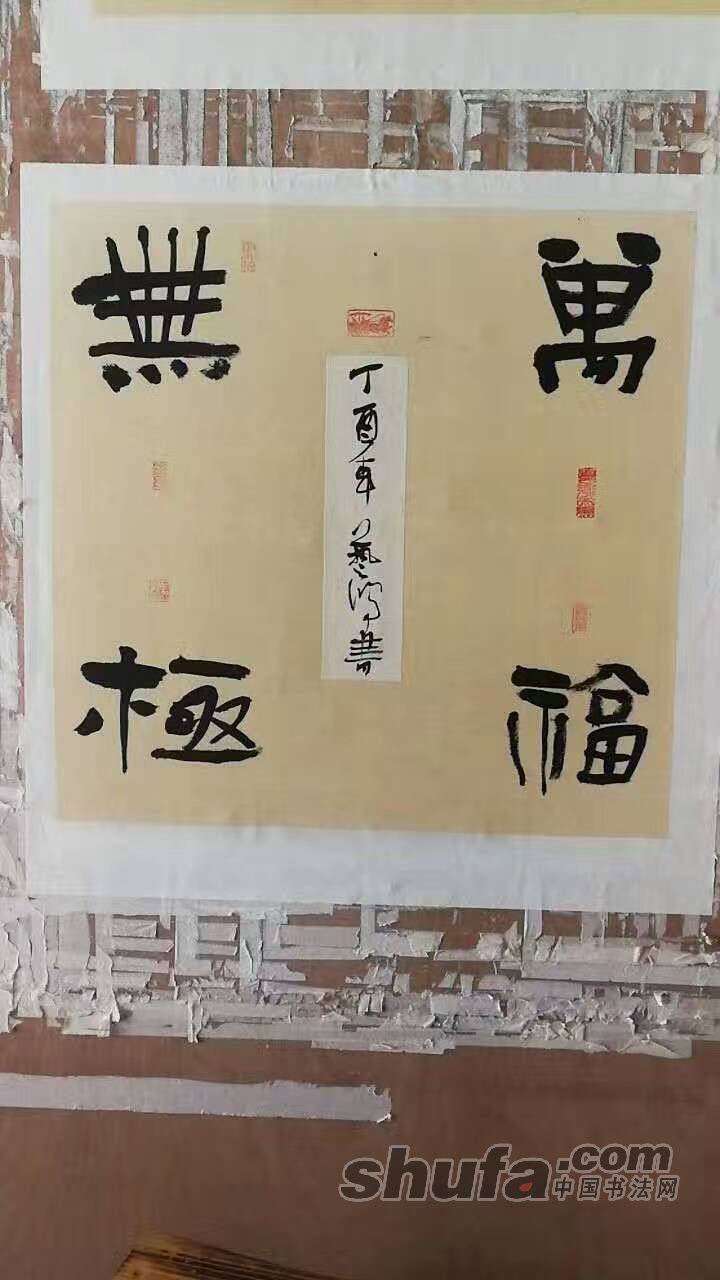 萬福
丁酉年藝鴻書
無極
shufa.com
中国书法网